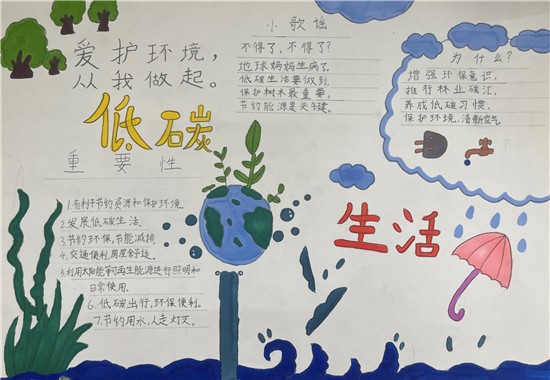 爱护环境，
从我做起。
低碳
重要性
1.有利于节约资源和保护环境.
2.发展低碳生活.
3.节约环保,节能减排
4.交通便利,房屋舒适。
5.利用太阳能等可再生能源进行照明和
日常使用。
6.低碳出行,环保便利。
7.节约用水,人走灯灭。
小歌谣
不得了，不得了?
地球妈妈生病了
低碳生活要做到,
保护树木最重要,
节约能源是关键。
为什么?
增强环保意识,
推行林业碳汇,
养成低碳习惯,
保护环境,清新空气
生活